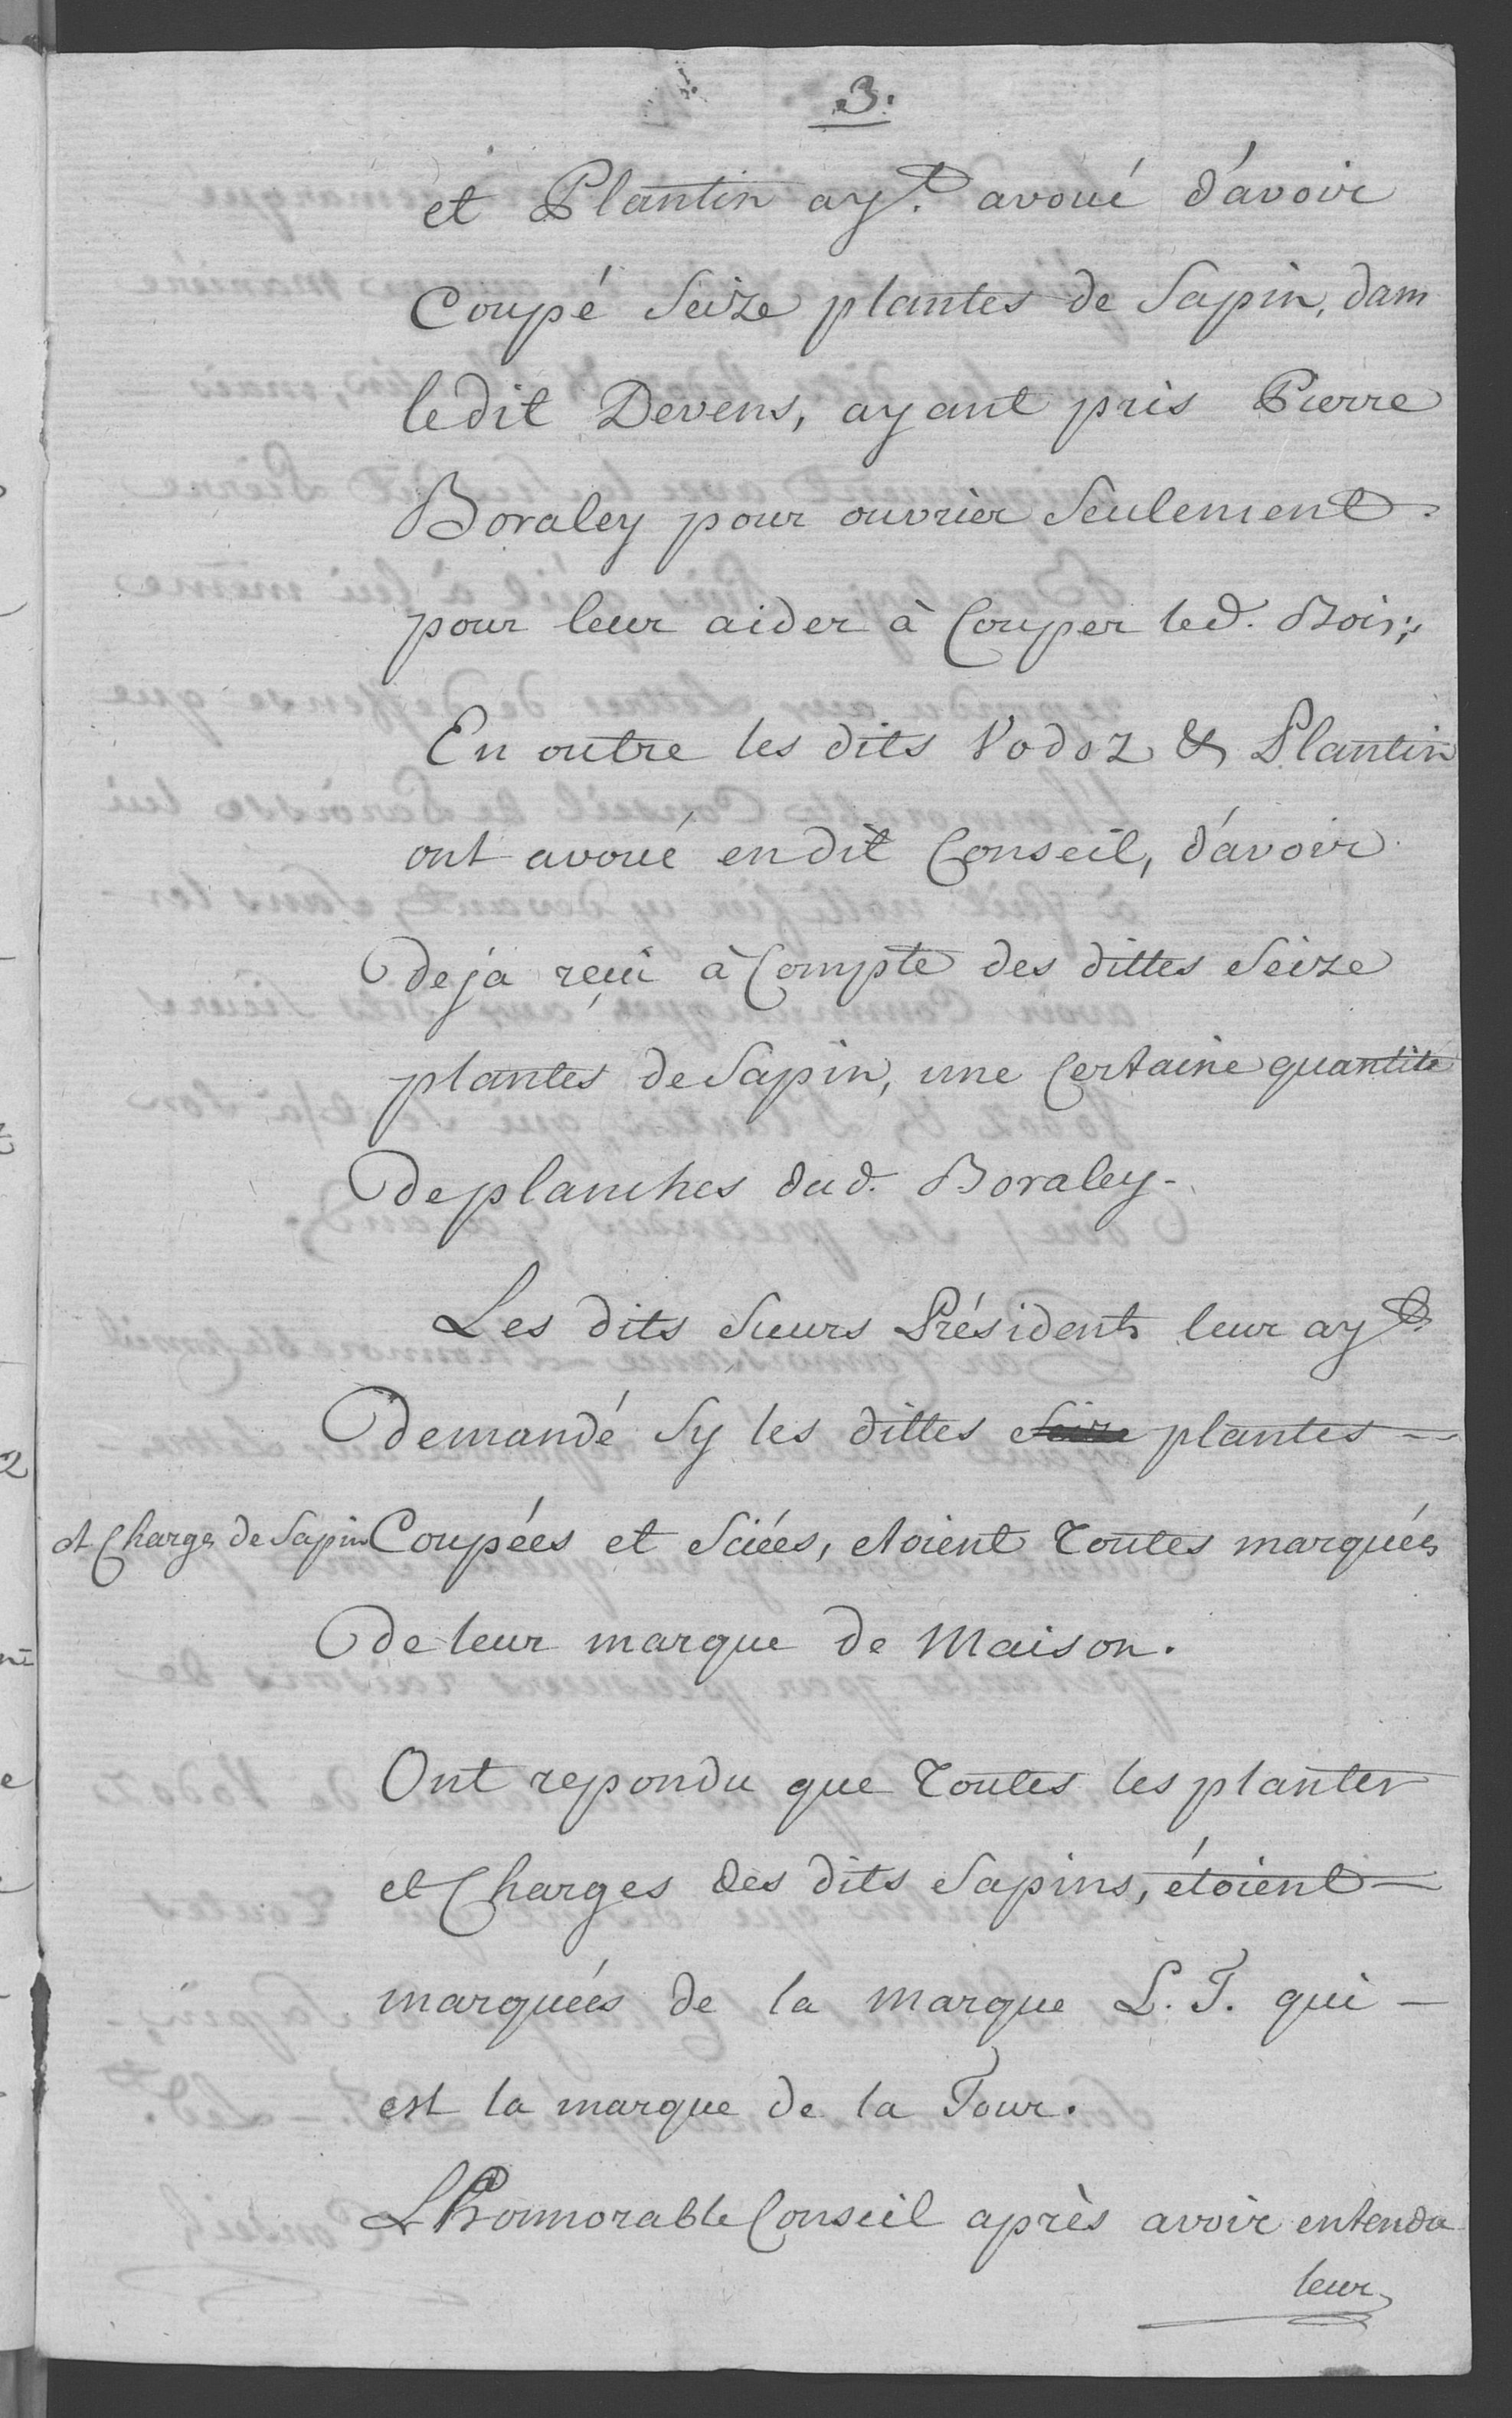 3.
et Plantin ay.t avoué d'avoir
Coupé Seize plantes de Sapin, dans
ledit Devens, ayant pris Pierre
Boraley pour ouvrier Seulement
pour leur aider à Couper led. Bois;
En outre les dits Vodoz & Plantin
ont avoué en dit Conseil, d'avoir
deja reçu à Compte des dittes Seize
plantes de Sapin, une Certaine quantité
de planches dud. Boraley-
Les dits Sieurs Présidents leur ayt
demandé Sy les dittes Seize plantes -
et Charges de Sapin Coupées et Sciées, etoient Toutes marquées
de leur marque de Maison.
Ont repondu que Toutes les plantes
et Charges des dits Sapins, étoient -
marquées de la marque L. T. qui -
est la marque de la Tour.
L'honnorable Conseil après avoir entendu
leur